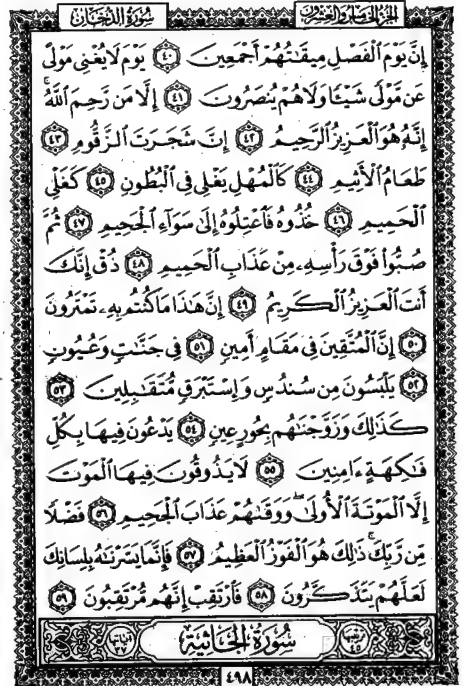 سُورَةُ الدُّخَانِ الجُزءُ الخَامِسُ وَالعِشْرُونَ
إِنَّ يَوْمَ ٱلْفَصْلِ مِيقَٰتُهُمْ أَجْمَعِينَ ٤٠ يَوْمَ لَا يُغْنِى مَوْلًى
عَن مَّوْلًى شَيْـًٔا وَلَا هُمْ يُنصَرُونَ ٤١ إِلَّا مَن رَّحِمَ ٱللَّهُ ۚ
إِنَّهُۥ هُوَ ٱلْعَزِيزُ ٱلرَّحِيمُ ٤٢ إِنَّ شَجَرَتَ ٱلزَّقُّومِ ٤٣
طَعَامُ ٱلْأَثِيمِ ٤٤ كَٱلْمُهْلِ يَغْلِى فِى ٱلْبُطُونِ ٤٥ كَغَلْىِ
ٱلْحَمِيمِ ٤٦ خُذُوهُ فَٱعْتِلُوهُ إِلَىٰ سَوَآءِ ٱلْجَحِيمِ ٤٧ ثُمَّ
صُبُّوا۟ فَوْقَ رَأْسِهِۦ مِنْ عَذَابِ ٱلْحَمِيمِ ٤٨ ذُقْ إِنَّكَ
أَنتَ ٱلْعَزِيزُ ٱلْكَرِيمُ ٤٩ إِنَّ هَٰذَا مَا كُنتُم بِهِۦ تَمْتَرُونَ
٥٠ إِنَّ ٱلْمُتَّقِينَ فِى مَقَامٍ أَمِينٍ ٥١ فِى جَنَّٰتٍ وَعُيُونٍ
٥٢ يَلْبَسُونَ مِن سُندُسٍ وَإِسْتَبْرَقٍ مُّتَقَٰبِلِينَ ٥٣
كَذَٰلِكَ وَزَوَّجْنَٰهُم بِحُورٍ عِينٍ ٥٤ يَدْعُونَ فِيهَا بِكُلِّ
فَٰكِهَةٍ ءَامِنِينَ ٥٥ لَا يَذُوقُونَ فِيهَا ٱلْمَوْتَ
إِلَّا ٱلْمَوْتَةَ ٱلْأُولَىٰ ۖ وَوَقَىٰهُمْ عَذَابَ ٱلْجَحِيمِ ٥٦ فَضْلًا
مِّن رَّبِّكَ ۚ ذَٰلِكَ هُوَ ٱلْفَوْزُ ٱلْعَظِيمُ ٥٧ فَإِنَّمَا يَسَّرْنَٰهُ بِلِسَانِكَ
لَعَلَّهُمْ يَتَذَكَّرُونَ ٥٨ فَٱرْتَقِبْ إِنَّهُم مُّرْتَقِبُونَ ٥٩
ترتيبها ٤٥ سُورَةُ الجَاثِيَةِ آياتها ٣٧
٤٩٨